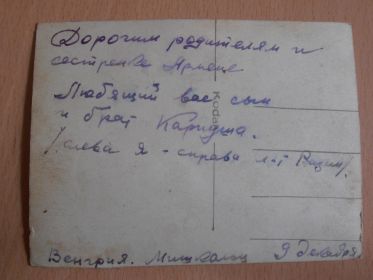 Дорогим родителям и
сестренке Армене
Любящий вас сын
и брат Каридша.
/слева я - справа л-т Вадим/.
Kodak
Венгрия. Мишкольц 9 декабря